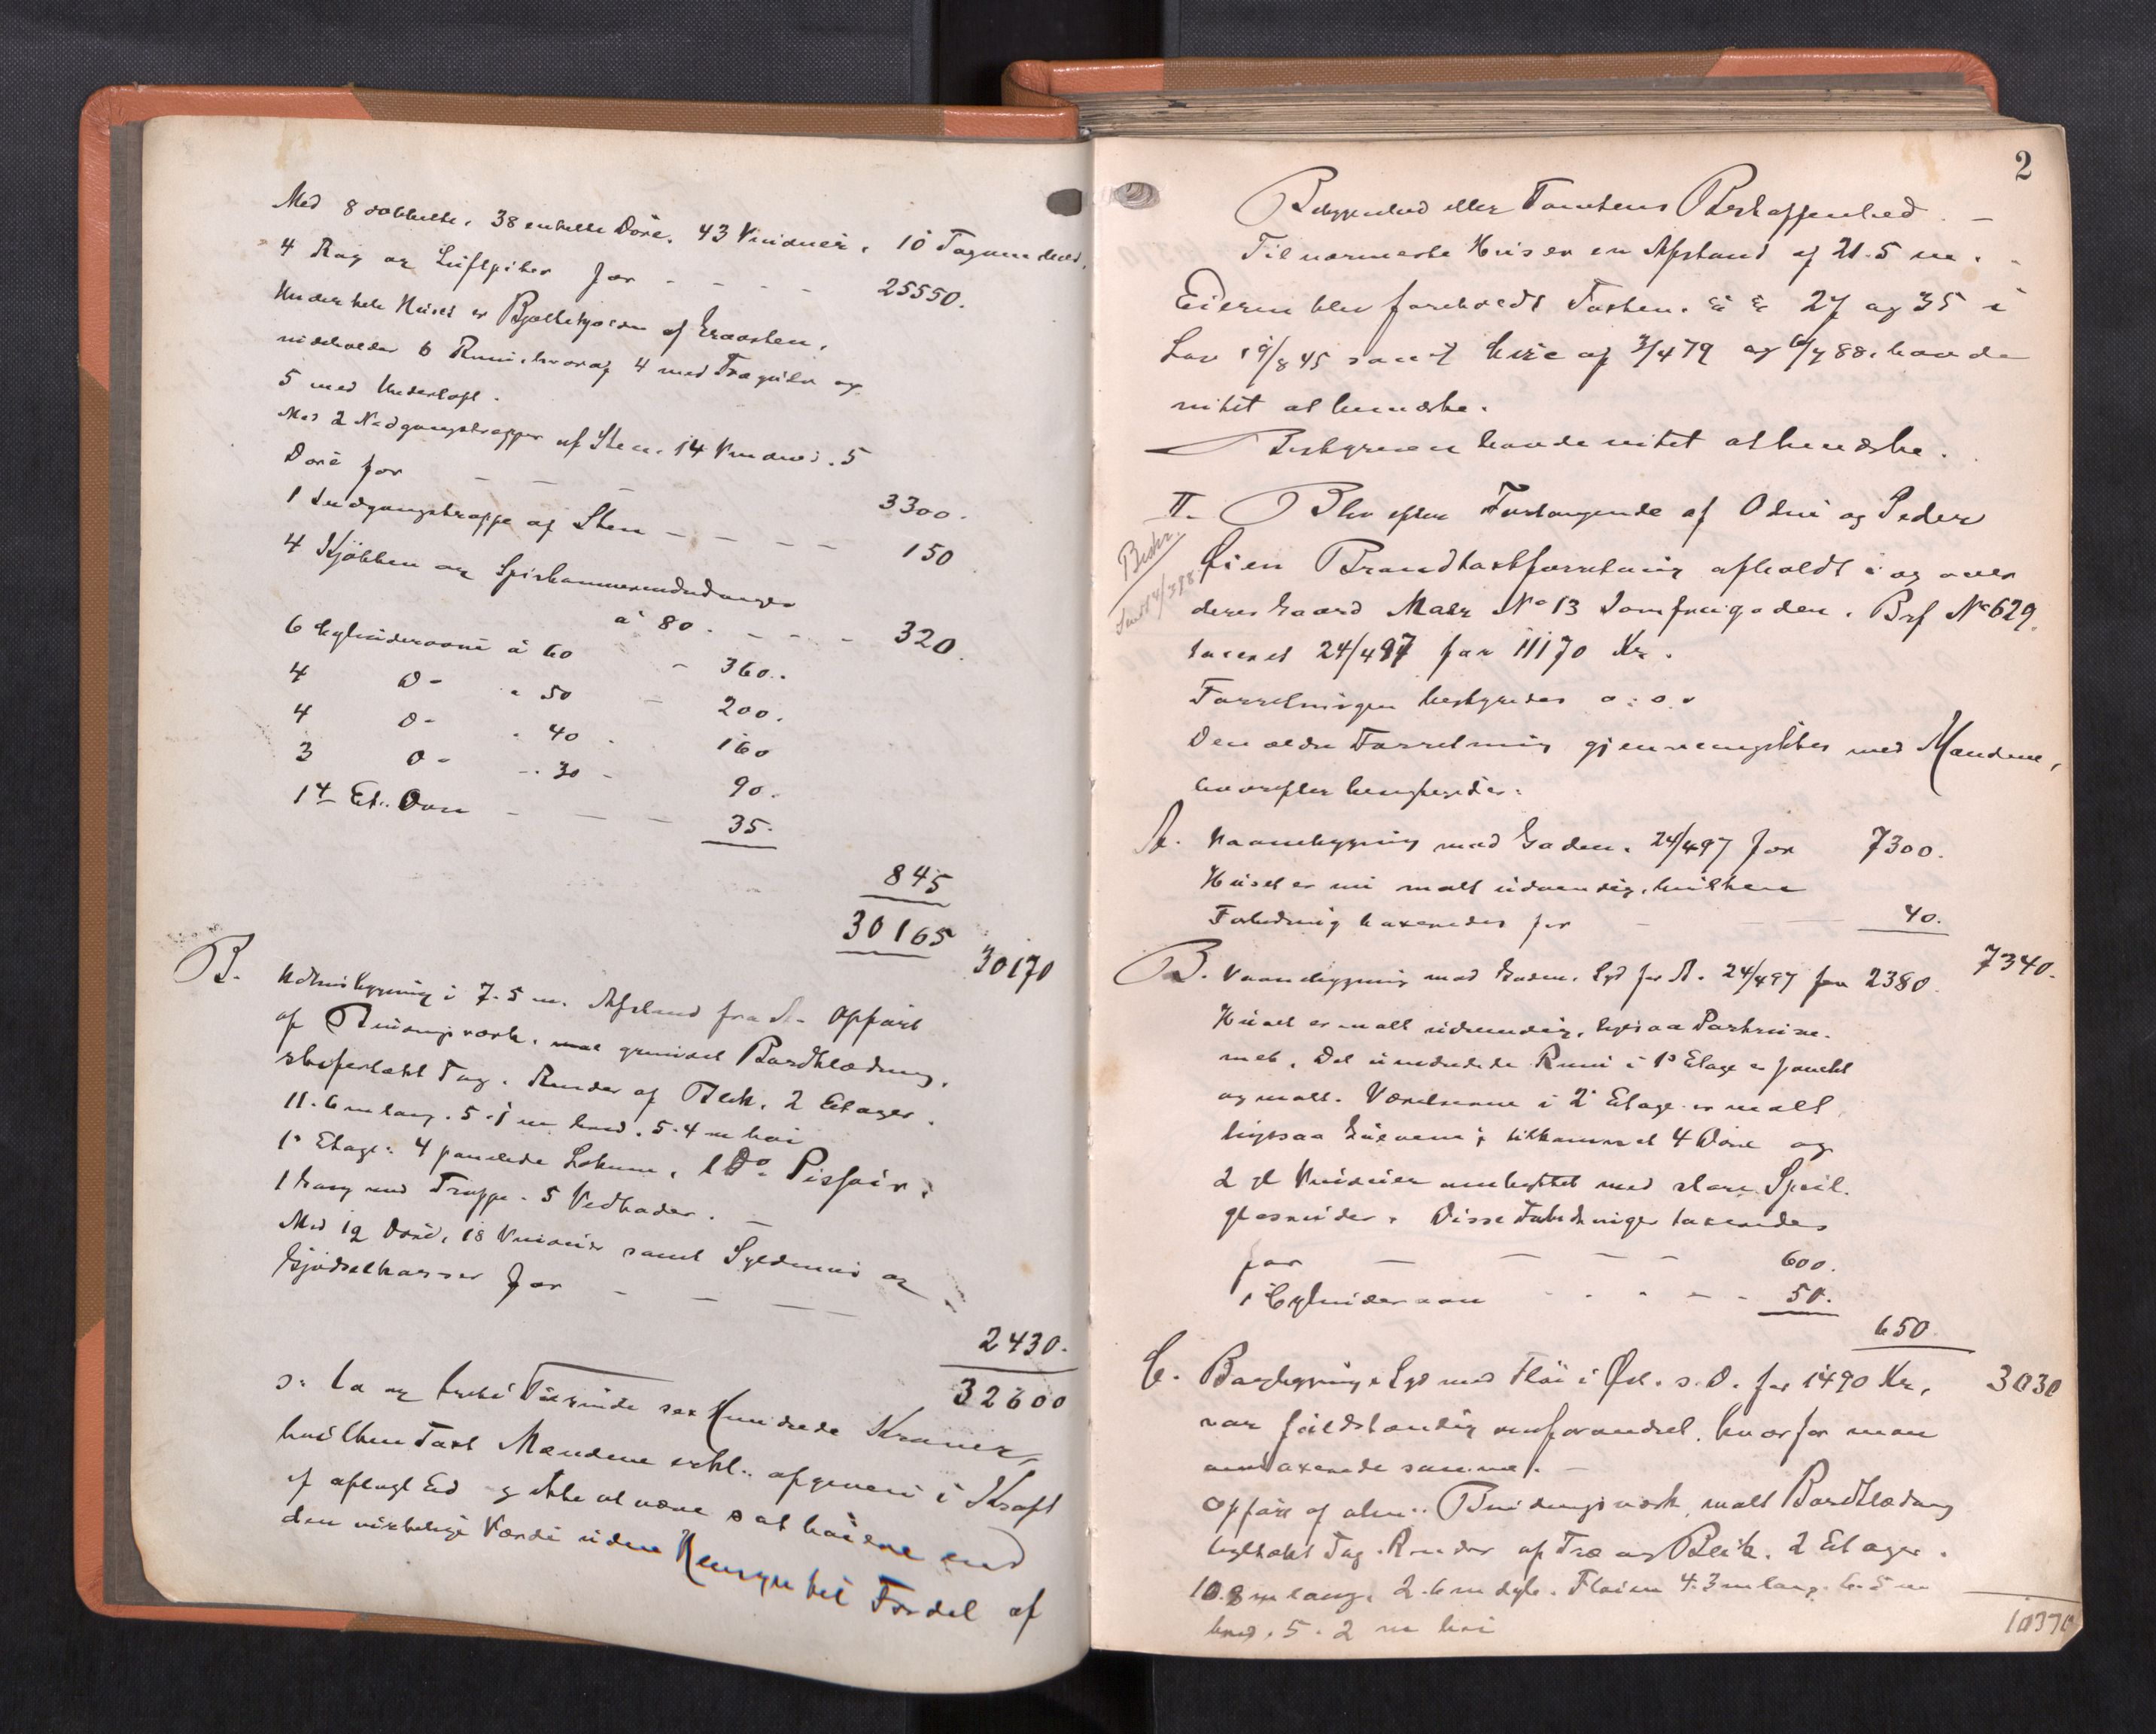 Med 8 dobbelte, 38 enkelte Döre, 43 Vinduer, 10 Tagvinduer,
4 Røg og Luftpiber for - - - - 25550.
Under hele Huset er Bjelkekjælder af Graasten,
indeholder 6 Rum, hvoraf 4 med Trægulv og
5 med Underloft.
Med 2 Nedgangstrapper af Sten, 14 Vinduer, 5
Döre for - - - 3300.
1 Indgangstrappe af Sten - - - - 150
4 Kjökken og Spiskammerindredninger
à 80. - - - 320.
6 Cylinderovne à 60 - 360.
4 Do - " 50 - 200.
4 Do - " 40 - 160
3 Do - " 30 - 90.
1 4 Et. Ovn - - - 35.
845
30165
30170
B. Udhusbygning i 7.5 m. Afstand fra A. Opført
af Bindingsværk, grundet Bordklædning,
skifertækt Tag. Render af Blik. 2 Etager.
11.6 m lang. 5.1 m bred. 5.4 m høi
1e Etage: 4 panelede Lokum, 1 Do Pissoir,
1 Gang med Trappe. 5 Vedboder. -
Med 19 Döre, 18 Vinduer samt Syldmur og
Gjødselkasser for - - - 2430.
32600
s: to og tredivi Tusinde sex Hundrede Kroner,
hvilken Taxt Mændene erkl. afgiven i Kraft
af aflagt Ed og ikke at være sat høiere end
den virkelige Værdi uden Hensyn til Fordel af
2
Beliggenhed eller Tomtens Beskaffenhed. -
Til nærmeste Hus er en Afstand af 21.5 m. -
Eieren blev foreholdt Taxten. §§ 27 og 35 i
Lov 19/8 45 samt Circ af 3/4 79 og 6/7 88, havde
intet at bemærke.
Bestyreren havde intet at bemærke.
II. Blev efter Forlangende af Odin og Peder
Beskr.
Lien Brandtaxtforretning afholdt i og over
deres Gaard Matr No 13 Jomfrugaden. Brf No 629,
taxeret 24/4 97 for 11170 Kr.
Forretningen bestyredes o: s. v
Den ældre Forretning gjennemgikkes med Mændene,
hvorefter besigtigedes:
A. Vaaningsbygning mod Gaden. 24/4 97 for 7300.
Huset er nu malt udvendig, hvilken
Forbedring taxeredes for - - 40.
7340.
B. Vaaningsbygning mod Gaden, Syd for A. 24/4 97 for 2380.
Huset er malt udvendig, ligesaa Portrum-
met. Det uindredede Rum i 1e Etage er panelt
og malt. Værelserne i 2e Etage er malt,
ligesaa Gulvene; tilkommet 4 Döre og
2 gl Vinduer ombyttet med store Speil-
glasruder. Disse Forbedringer taxeredes
for - - - - 600.
1 Cylinderovn - - - - 50.
650
3030
C. Bagbygning i Syd med Fløi i Øst. s. D. for 1490 Kr,
var fuldstændig uforandret, hvorfor man
omtaxerede samme. -
Opført af alm. Bindingsværk, malt Bordklædning
tegltækt Tag. Render af Træ og Blik. 2 Etager.
10.8 m lang. 2.6 m dyb. Fløien 4.3 m lang. 6.5 m
bred. 5.2 m høi
10370